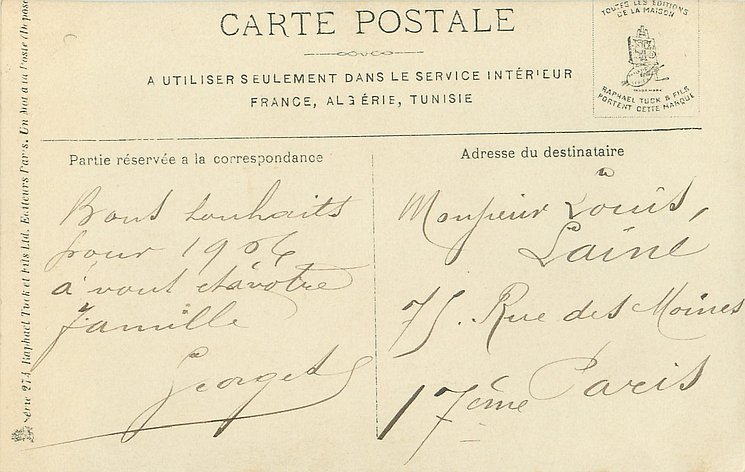 CARTE POSTALE
A UTILISER SEULEMENT DANS LE SERVICE INTÉRIEUR
FRANCE, ALGÉRIE, TUNISIE
TOUTES LES ÉDITIONS
DE LA MAISON
RAPHAEL TUCK & FILS
PORTENT CETTE MARQUE
Série 274. Raphael Tuck et Fils Ltd. Editeurs Paris. Un Mot a la Poste (Dépose
Partie réservée a la correspondance
Bons souhaits
pour 1906
à vous et à votre
famille
Georges
Adresse du destinataire
à
Monsieur Louis,
Lainé
75. Rue des Moines
17ème Paris